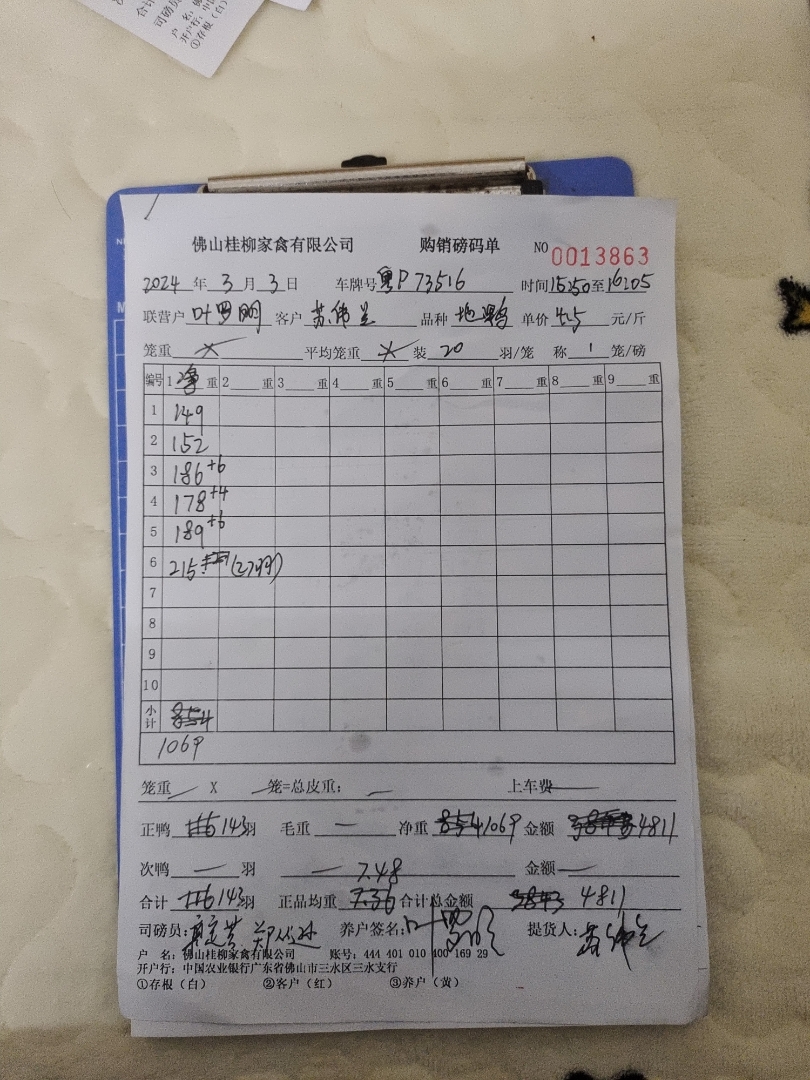 佛山桂柳家禽有限公司 购销磅码单 NO 0013863
2024 年 3 月 3 日 车牌号 粤P 73516 时间 15:50 至 16:05
联营户 叶罗明 客户 苏伟兰 品种 地鸭 单价 4.5 元/斤
笼重 平均笼重 装 20 羽/笼 称 1 笼/磅
编号 1 净 重 2 重 3 重 4 重 5 重 6 重 7 重 8 重 9 重
1 149
2 152
3 186+6
4 178+4
5 189+6
6 215 (27羽)
7
8
9
10
小计 854
1069
笼重 X 笼=总皮重： 上车费
正鸭 116 143羽 毛重 — 净重 854 1069 金额 4811
次鸭 — 羽 — 7.48 金额 —
合计 116 143羽 正品均重 7.36 合计总金额 3843 4811
司磅员： 养户签名： 提货人：
户 名：佛山桂柳家禽有限公司 账号：444 401 010 400 169 29
开户行：中国农业银行广东省佛山市三水区三水支行
①存根（白） ②客户（红） ③养户（黄）